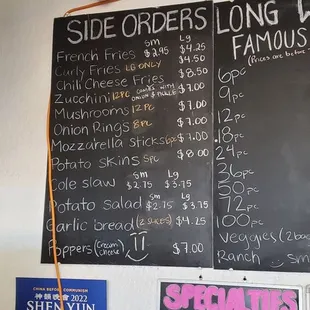 SIDE ORDERS
Sm Lg
French Fries $2.95 $4.25
Curly Fries LG ONLY $4.50
Chili Cheese Fries $8.50
Zucchini 12PC COMES WITH ONION & PICKLE $7.00
Mushrooms 12PC $7.00
Onion Rings 8PC $7.00
Mozzarella Sticks 6PC $7.00
Potato skins 5PC $8.00
Sm Lg
Cole slaw $2.75 $3.75
Sm Lg
Potato Salad $2.75 $3.75
Garlic bread (2 SLICES) $4.25
Poppers (cream cheese) $7.00
LONG
FAMOUS
(Prices are before
6pc
9pc
12pc
18pc
24pc
36pc
50pc
72pc
100pc
veggies (2
Ranch
CHINA BEFORE COMMUNISM
神韻晚會 2022
SHEN YUN
SPECIALTIES